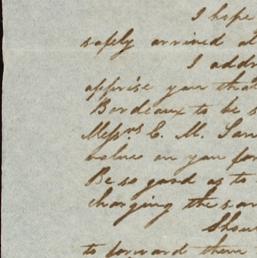 I hope
safely arrived at
I addr
apprise you that
Bordeaux to be s
Messrs C. M. San
values on you for
Be so good as to
charging the sam
Shou
to forward them